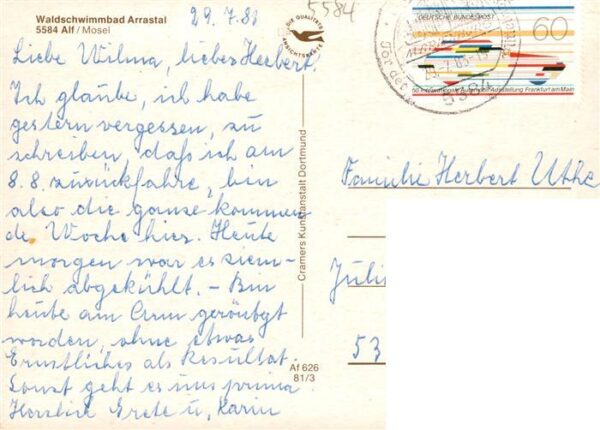 Waldschwimmbad Arrastal
5584 Alf / Mosel
29.7.83
5584
DIE QUALITÄTS
ANSICHTSKARTE
DEUTSCHE BUNDESPOST
60
50 Internationale Automobil-Ausstellung Frankfurt am Main
5584
Liebe Wilma, lieber Herbert.
Ich glaube, ich habe
gestern vergessen, zu
schreiben, daß ich am
8.8. zurückfahre, bin
also die ganze kommen
de Woche hier. Heute
morgen war es ziem-
lich abgekühlt. – Bin
heute am Arm geröntgt
worden, ohne etwas
Ernstliches als Resultat.
Sonst geht es uns prima
Herzlich Grete u. Karin
Cramers Kunstanstalt Dortmund
Af 626
81/3
Familie Herbert Uthe
Jüli
53